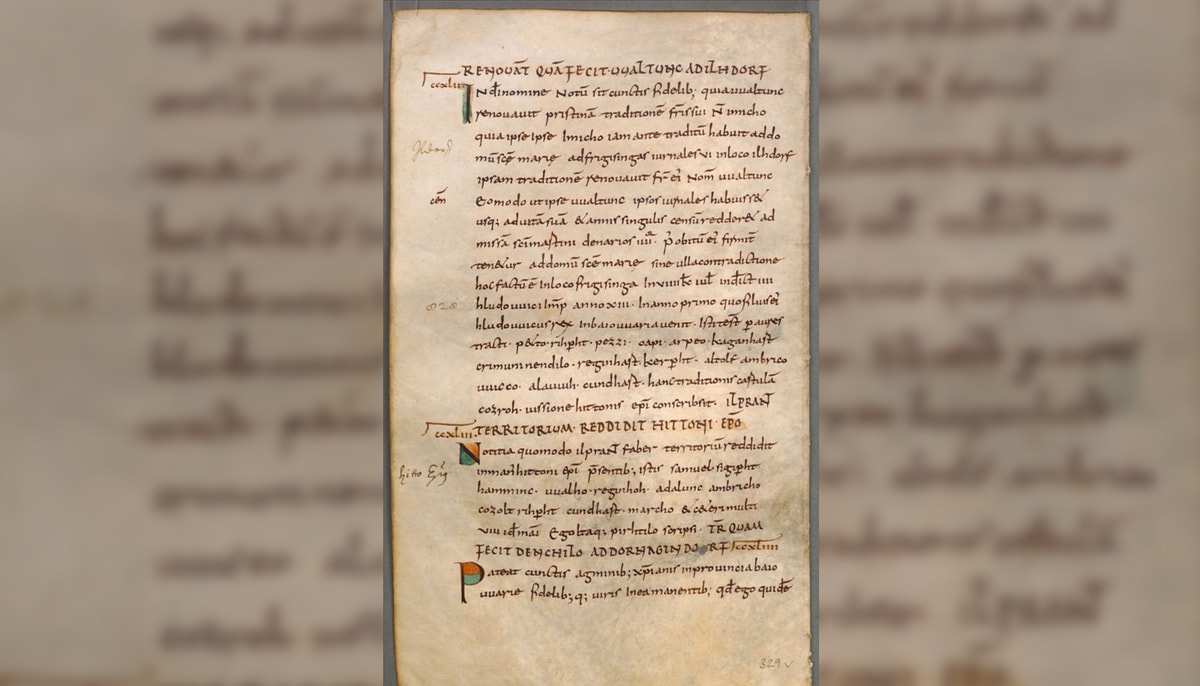 RENOUAT QUĀ FECIT UUALTUNC AD ILHDORF·
ccxlii
IN dī nomine Notū sit cunctis fidelib; quia uualtunc
renouauit pristinā traditionē fr̄is sui N̄ immicho
quia ipse ipse Immicho iam ante traditū habuit ad do
mū sc̄e marię ad frigisingas iurnales vi in loco ilhdorf
ipsam traditionē renouauit fr̄ ei; Nom̄ uualtunc
cēn
Eo modo ut ipse uualtunc ipsos iurnales habuiss&
usq; ad uitā suā & annis singulis censū redder& ad
missā sc̄i martini denarios iiii· p̄ obitū ei; firmit̄
ten&ur ad domū sc̄e marię sine ulla contradictione
hoc factū ē In loco frigisinga In viiii k̄ iul̄ indict̄ iiii
828
hludouuici Imp̄ anno xiii· In anno primo quo filius ei;
hludouuicus rex in baiouuaria uenit· Isti test̄ p aures
tracti· p&to· rihpht· pezzi· oapi· arpeo· kaganhart
crimuni nendilo· reginhart· kerpht· altolf· ambrico
uuicco· alauuih· cundhart· hanc traditionis cartulā
cozroh· iussione hittonis ep̄i conscribsit· ILPRAÑT
ccxliii
TERRITORIUM· REDDIDIT HITTONI· EP̄O
Notitia quomodo ilprant̄ faber territoriū reddidit
hitto
in man̄ hittoni ep̄i p̄sentib; istis samuel sigipht
hamminc· uualho· reginhoh· adalunc ambricho
cozolt rihpht cundhart· marcho & c&eri multi
viii id̄ mai Ego ltaq; pirhtilo scripsi· TR̄ QUAM
FECIT DENCHILO AD DORNAGINDORF ccxliiii
Pateat cunctis agminib; xp̄ianis in prouincia baio
uuarie fidelib; q; uiris In ea manentib; qđ ego quidē
329 v